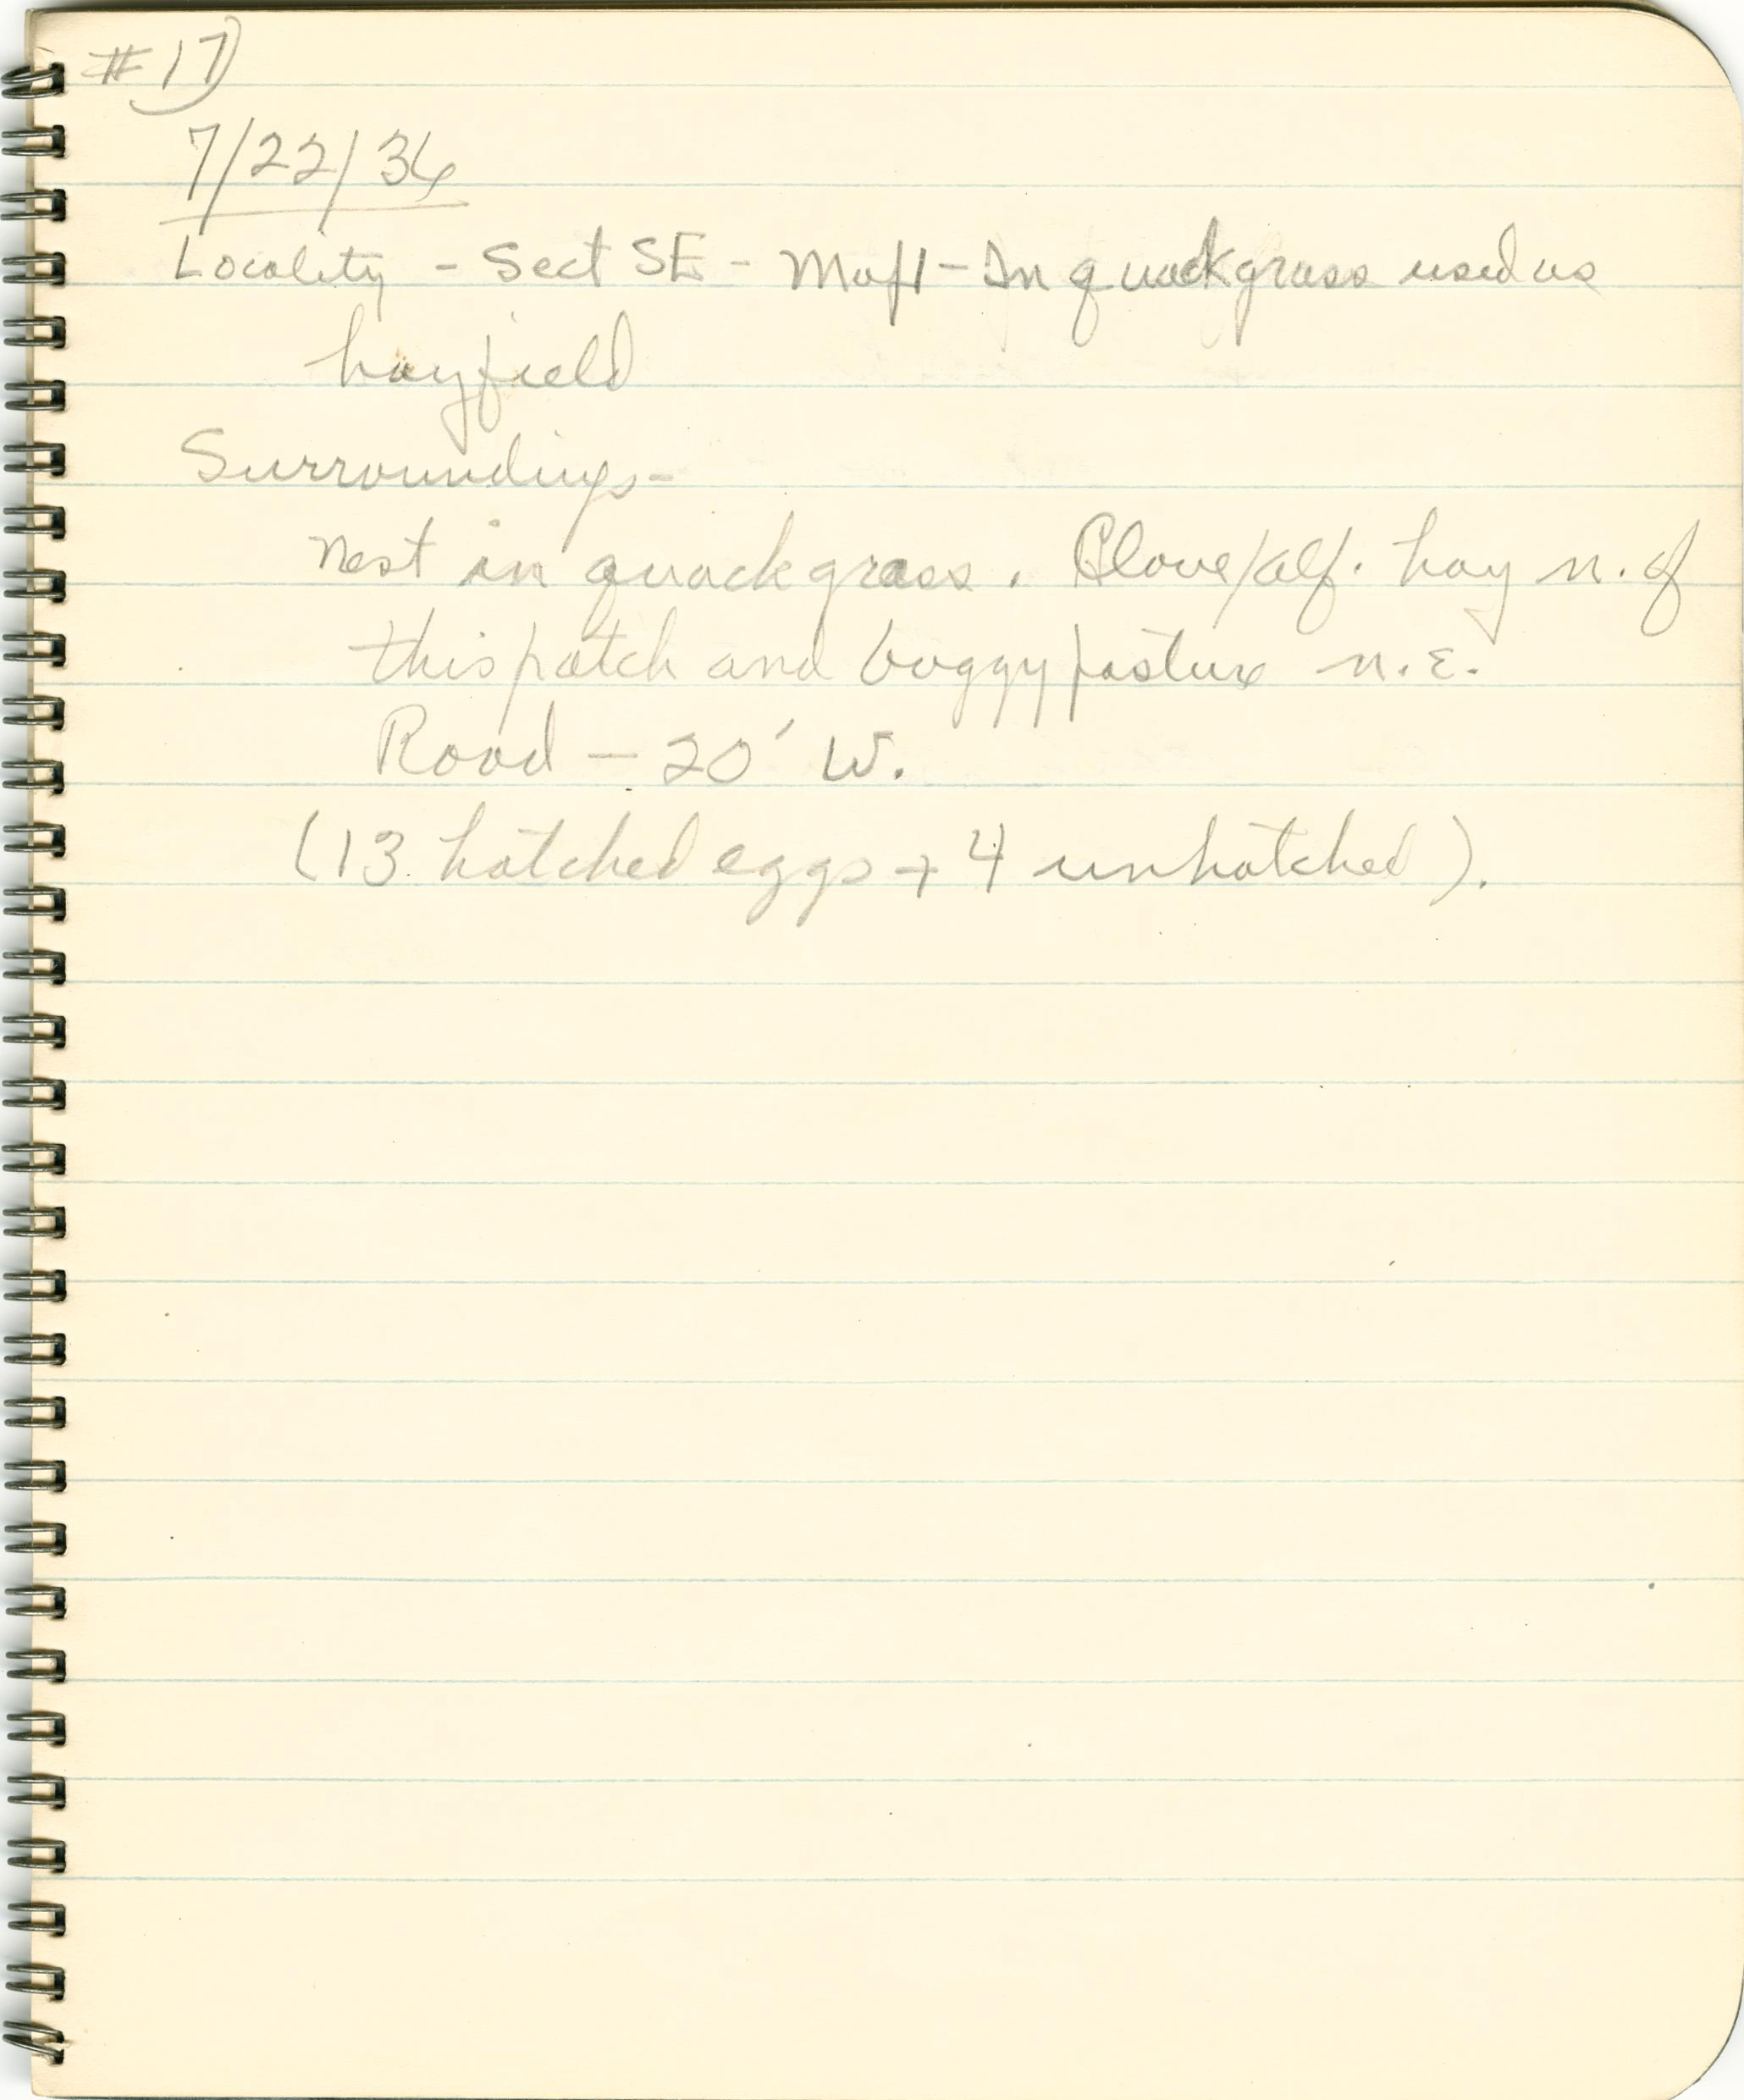 #17)
7/22/36
Locality - Sect SE - Map1 - In quackgrass used as
hayfield
Surroundings-
Nest in quackgrass. Clover/alf. hay n. of
this patch and boggy pasture n.E.
Road - 20' W.
(13 hatched eggs + 4 unhatched).